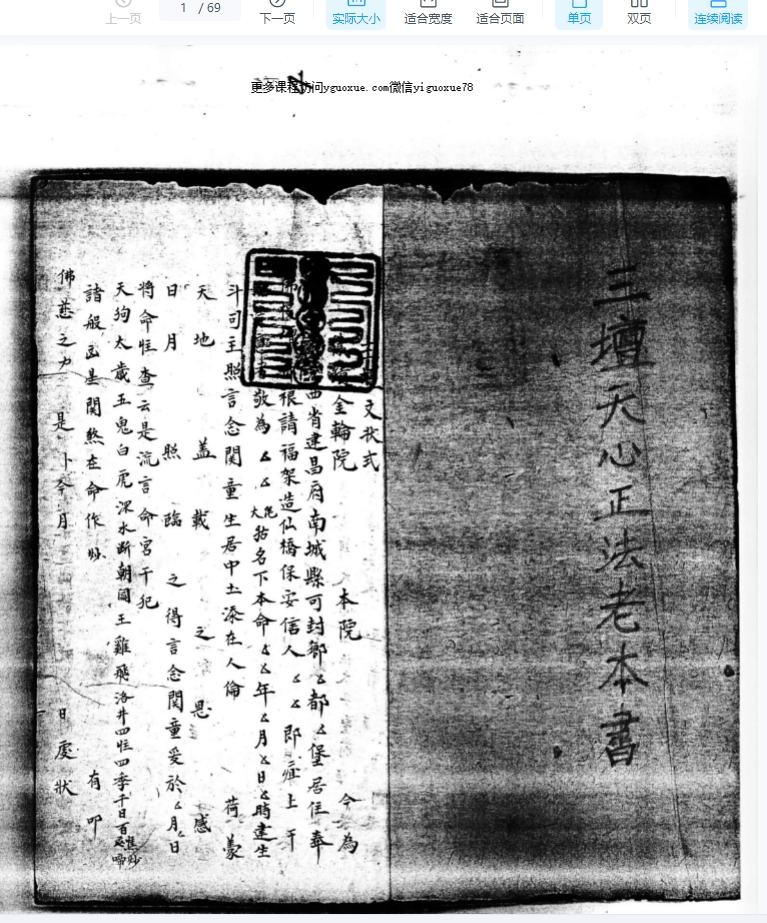 上一页
1 / 69
下一页
实际大小
适合宽度
适合页面
单页
双页
连续阅读
更多课程访问yguoxue.com微信yiguoxue78
三壇天心正法老本書
文狀式
金輪院 本院 今為
西省建昌府南城縣可封鄉厶都厶堡居住奉
根請福架造仙橋保安信人厶厶即 上干
敬為厶厶 名下本命厶厶年厶月厶日厶時建生
斗司主照言念関童生居中土添在人倫 荷蒙
天地蓋載之恩 感
日月照臨之得言念関童受於厶月日
將命恠查云是流言命宮干犯
天狗太歲五鬼白虎深水断朝閻王雞飛洛井四恠四季千日百
諸般凶星関煞在命作 有叩
佛慈之力是卜今月 日處狀